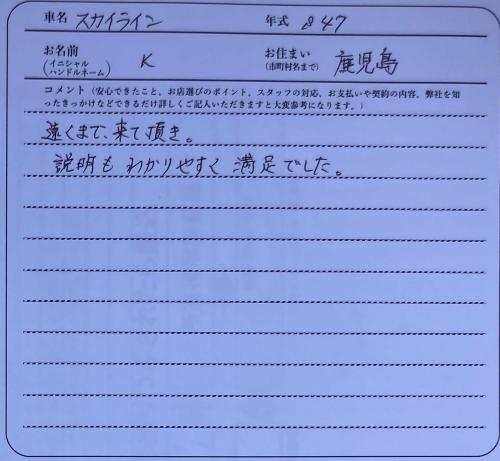 車名 スカイライン 年式 S47
お名前 (イニシャル ハンドルネーム) K お住まい (市町村名まで) 鹿児島
コメント（安心できたこと、お店選びのポイント、スタッフの対応、お支払いや契約の内容、弊社を知
ったきっかけなどできるだけ詳しくご記入いただきますと大変参考になります。）
遠くまで、来て頂き。
説明も わかりやすく 満足でした。